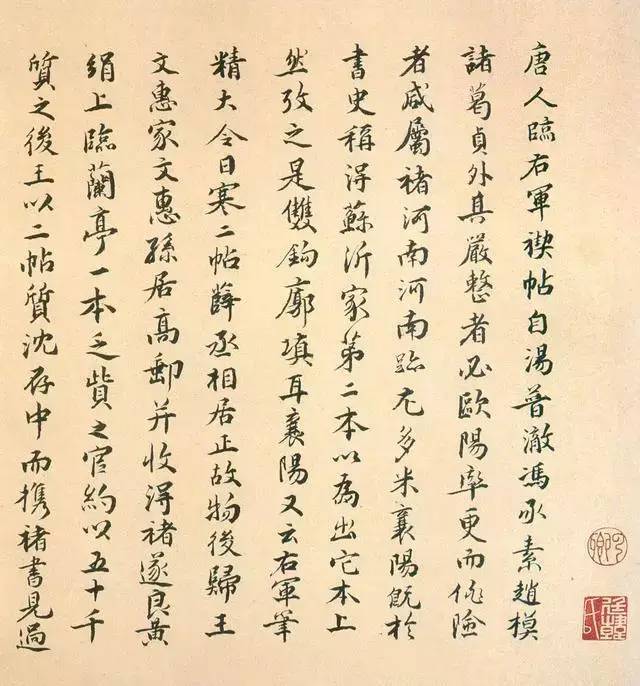 唐人臨右軍禊帖自湯普澈馮承素趙模
諸葛貞外其嚴整者必歐陽率更而佻險
者咸屬褚河南河南跡尤多米襄陽旣於
書史稱得蘇沂家第二本以為出它本上
然攷之是雙鉤廓填耳襄陽又云右軍筆
精大令日寒二帖薛丞相居正故物後歸王
文惠家文惠孫居高郵并收得褚遂良黃
絹上臨蘭亭一本乏貲之官約以五十千
質之後王以二帖質沈存中而攜褚書見過